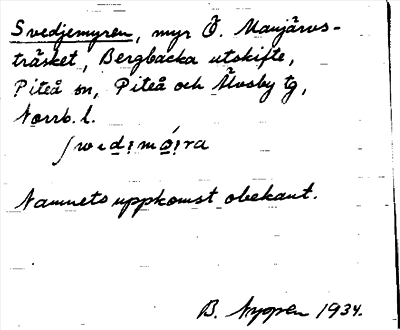 Svedjemyren, myr Ö. Manjärvs-
träsket, Bergbacka utskifte,
Piteå sn, Piteå och Älvsby tg,
Norrb. l.
Namnets uppkomst obekant.
B. 1934.